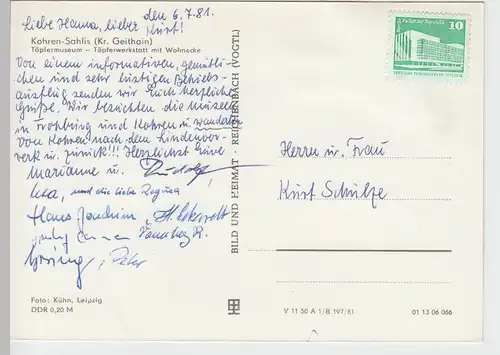 den 6.7.81.
Liebe Hanna, lieber Kurt!
Kohren-Sahlis (Kr. Geithain)
Töpfermuseum – Töpferwerkstatt mit Wohnecke
Von einem informativen, gemütli-
chen und sehr lustigen Betriebs-
ausflug senden wir Euch herzliche
Grüße. Wir besichten die Museen
in Frohburg und Kohren u. wanderten
von Kohren nach dem Lindenvor-
werk u. zurück!!! Herzlichst Eure
Marianne u. Rudolf
und die liebe Regina
Hans Joachim
BILD UND HEIMAT · REICHENBACH (VOGTL)
10
Herrn u. Frau
Kurt Schulze
Foto: Kühn, Leipzig
DDR 0,20 M
V 11 50 A 1/B 197/81
01 13 06 066